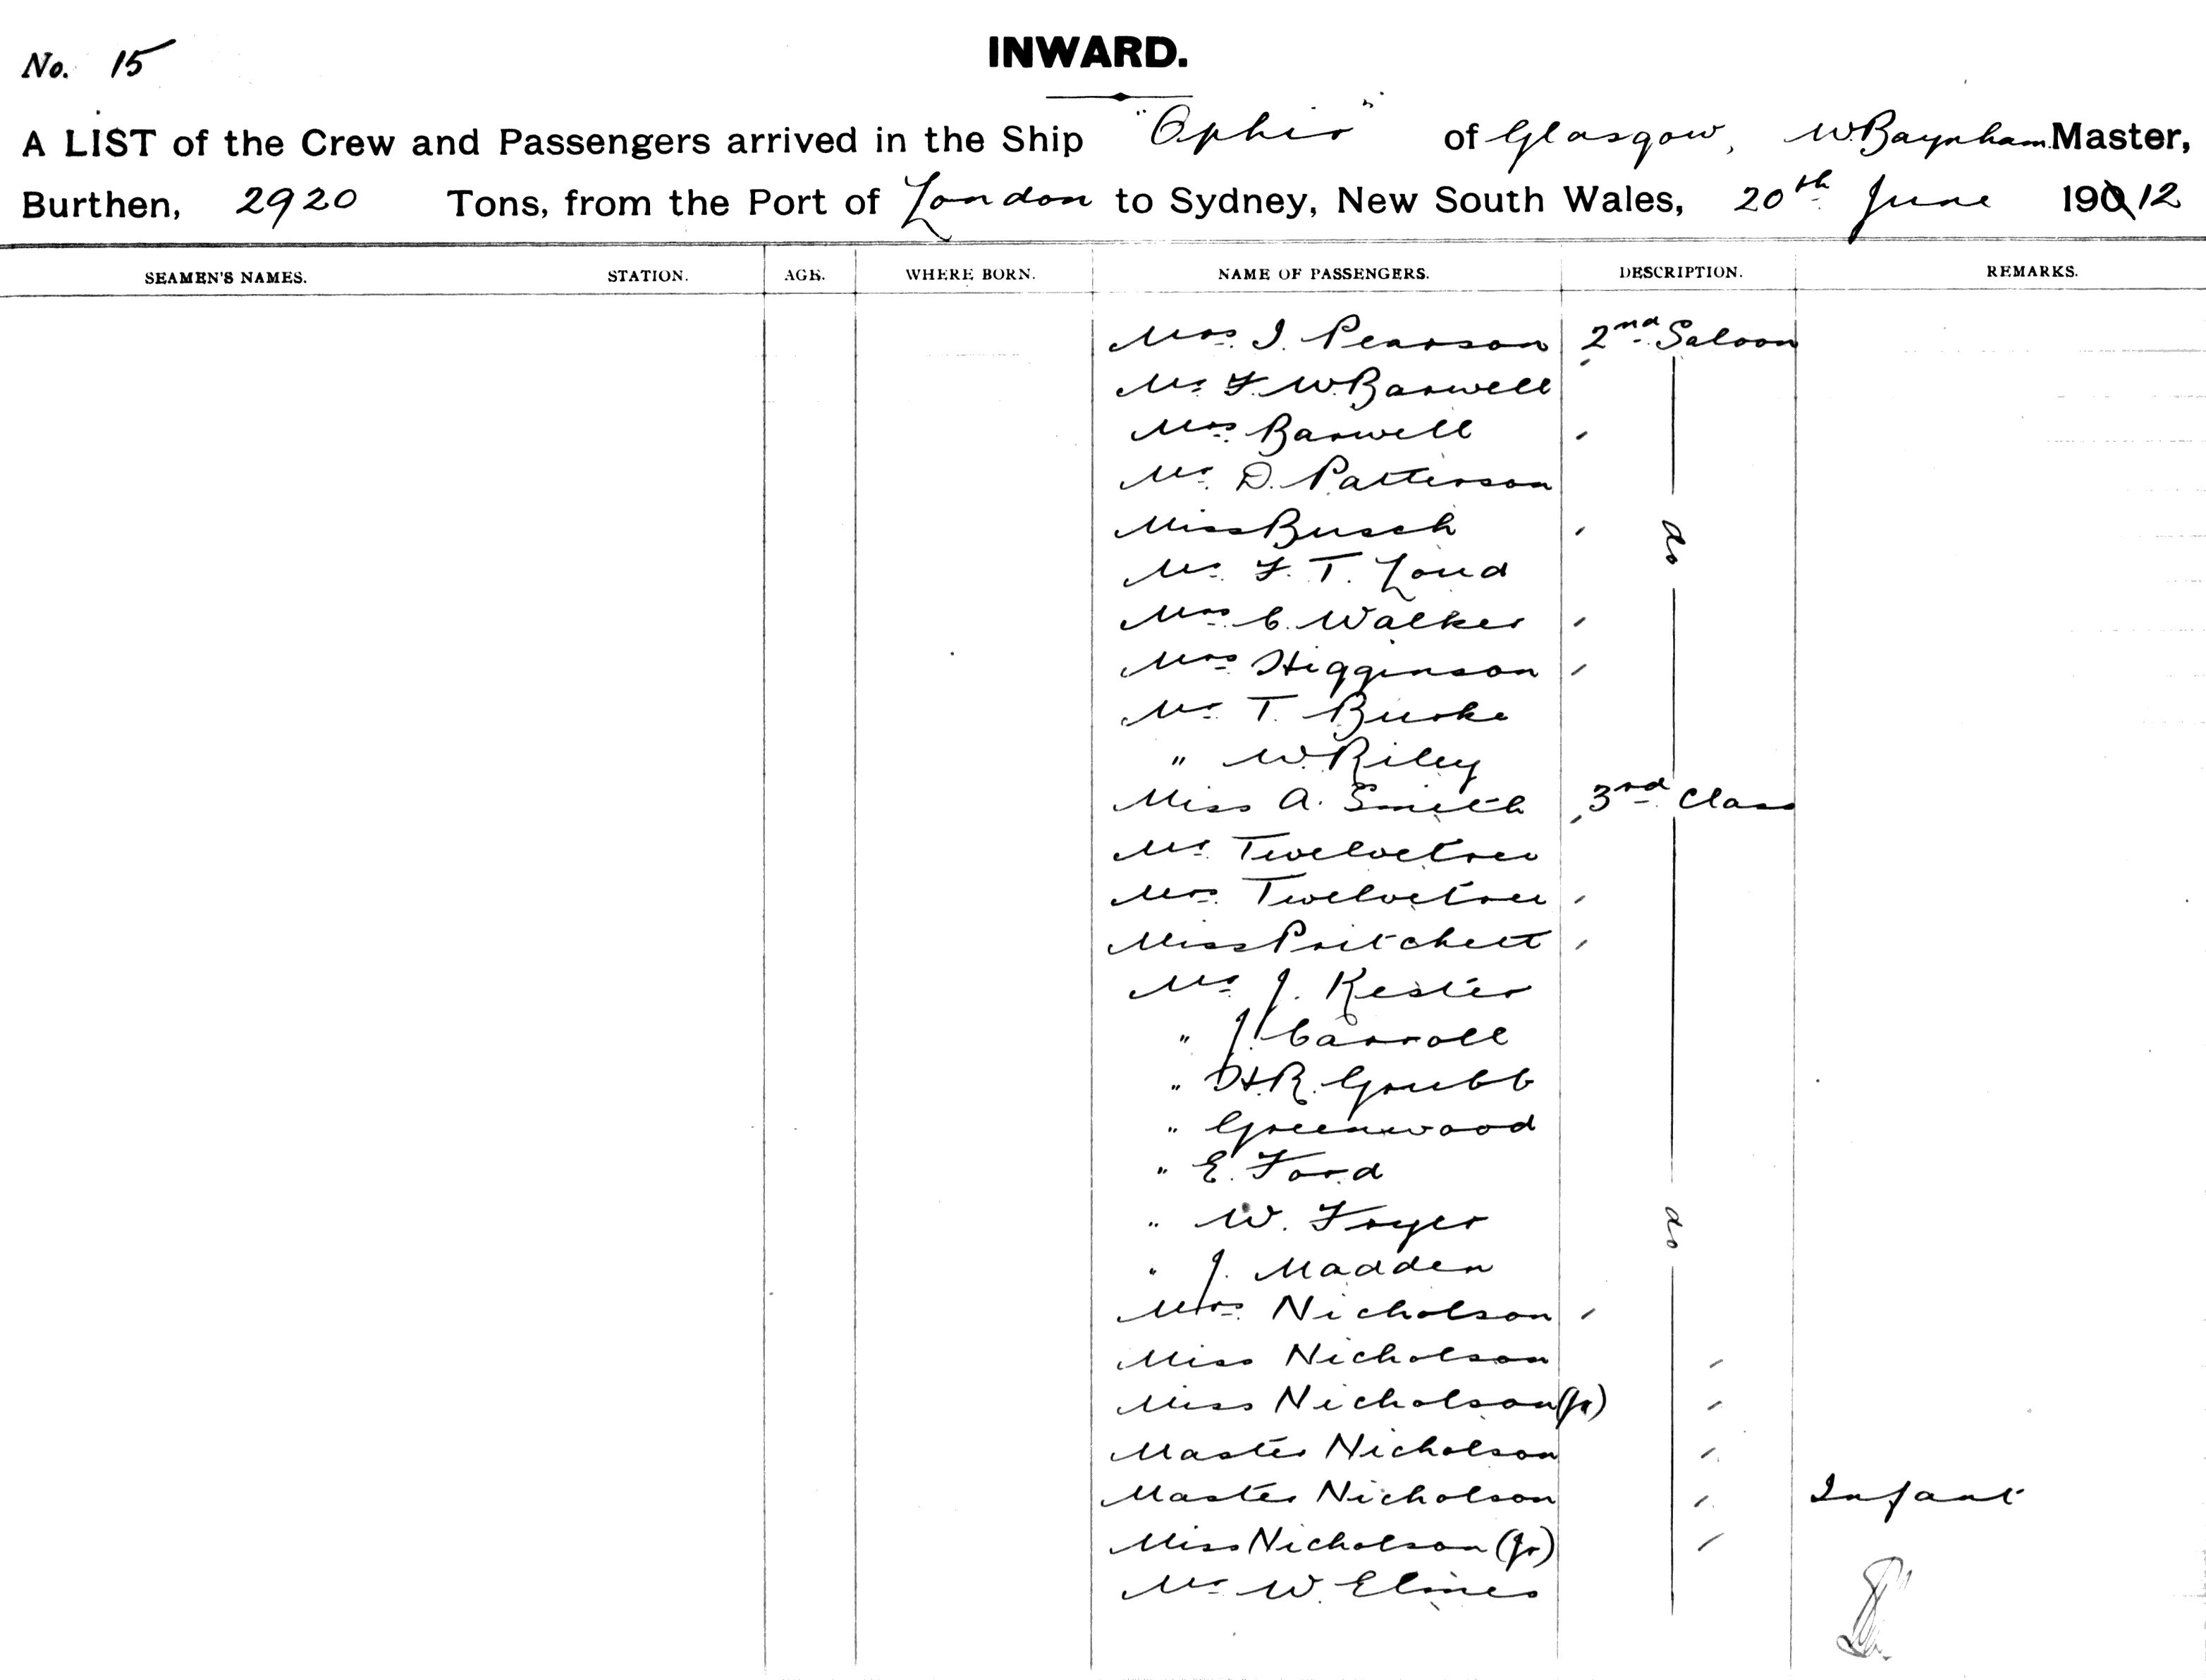 No. 15
INWARD.
A LIST of the Crew and Passengers arrived in the Ship "Ophir" of Glasgow, W. Baynham Master,
Burthen, 2920 Tons, from the Port of London to Sydney, New South Wales, 20th June 190 12
SEAMEN'S NAMES. STATION. AGE. WHERE BORN. NAME OF PASSENGERS. DESCRIPTION. REMARKS.
Mrs. I. Pearson 2nd Saloon
Mr. F. W. Barwell
Mrs. Barwell
Mr. D. Patterson
Miss Busch do
Mr. F. T. Loud
Mrs. C. Walker
Mrs. Higginson
Mr. T. Burke
" W. Riley
Miss A. Smith 3rd Class
Mr. Twelvetree
Mrs. Twelvetree
Miss Pritchett
Mr. J. Kester
" J. Carroll
" H. R. Grubb
" Greenwood
" E. Ford
" W. Fryer
" J. Madden do
Mrs. Nicholson
Miss Nicholson
Miss Nicholson (Jr)
Master Nicholson
Master Nicholson Infant
Miss Nicholson (Jr)
Mr. W. Elmes